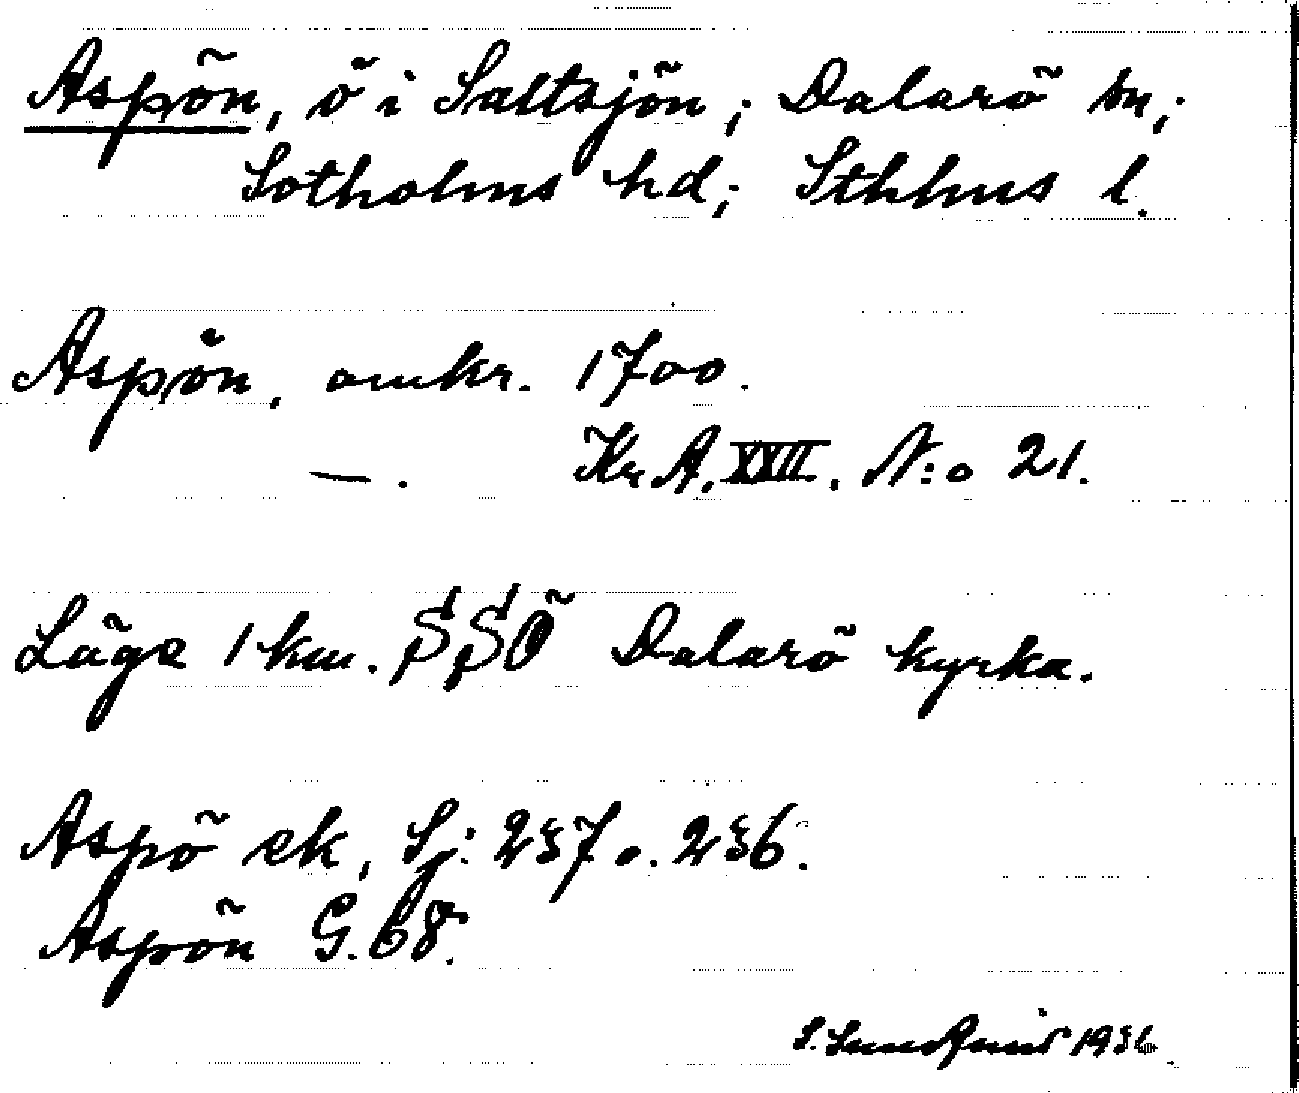 Aspön, ö i Saltsjön; Dalarö sn;
Sotholms hd; Sthlms l.
Aspön, omkr. 1700.
—. Kr. A. XXII. N:o 21.
Läge 1 km. SSÖ Dalarö kyrka.
Aspö ek, Sj: 237 o. 236.
Aspön G. 68.
S. Sundqvist